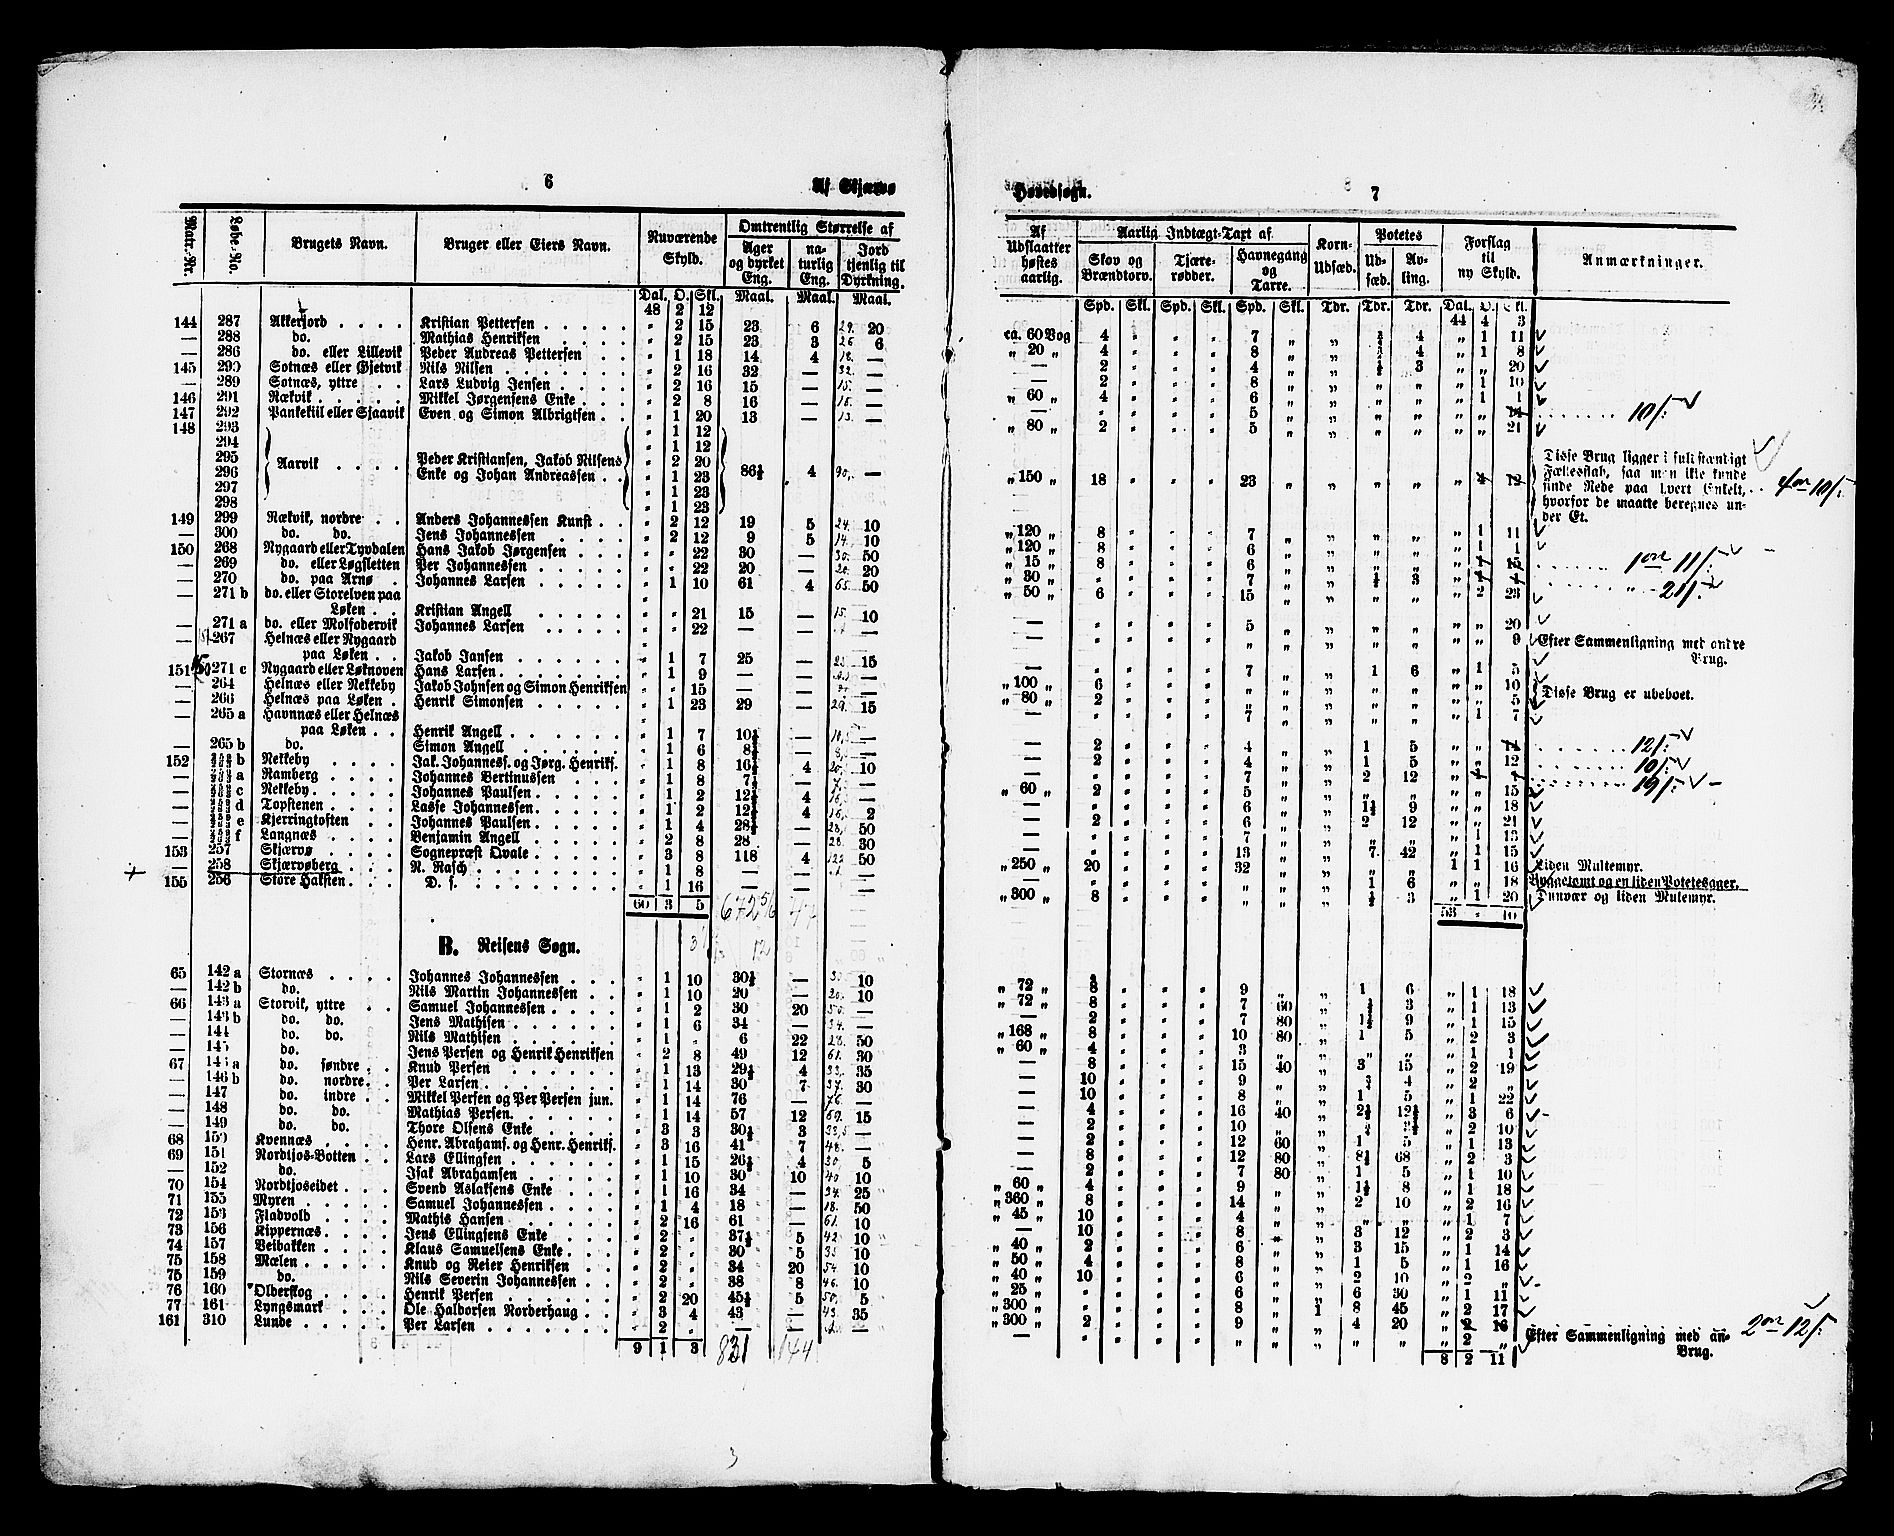 6
Af Skjærvø
Matr.-Nr. Løbe-No. Brugets Navn. Bruger eller Eiers Navn. Nuværende Skyld. Omtrentlig Størrelse af
Ager og dyrket Eng. naturlig Eng. Jord tjenlig til Dyrkning.
Dal. O. Skl. Maal. Maal. Maal.
48 2 12
144 287 Akkerfjord Kristian Pettersen " 2 15 23 6 29. 20
— 288 do. Mathias Henriksen " 2 15 23 3 26. 6
— 286 do. eller Lillevik Peder Andreas Pettersen " 1 18 14 4 18. —
145 290 Sotnæs eller Gjetvik Nils Nilsen " 2 16 32 — 32. —
— 289 Sotnæs, yttre Lars Ludvig Jensen " 2 16 15 — 15. —
146 291 Rækvik Mikkel Jørgensens Enke " 2 8 16 — 16. —
147 292 Pankekiil eller Sjaavik Even og Simon Albrigtsen " 1 20 13 — 13. —
148 293 " 1 12
294 " 1 12
295 Aarvik Peder Kristiansen, Jakob Nilsens " 2 20
296 Enke og Johan Andreassen " 1 23 86½ 4 90. —
297 " 1 23
298 " 1 23
149 299 Rækvik, nordre Anders Johannessen Kunst " 2 12 19 5 24. 10
— 300 do. do. Jens Johannessen " 2 12 9 5 14. 10
150 268 Nygaard eller Tyvdalen Hans Jakob Jørgensen " " 22 30 — 30. 50
— 269 do. eller Løgsletten Per Johannessen " " 22 20 — 20. 20
— 270 do. paa Arnø Johannes Larsen " 1 10 61 4 65. 50
— 271 b do. eller Storelven paa
Løken Kristian Angell " " 21 15 — 15. 10
— 271 a do. eller Molfodervik Johannes Larsen " " 22 — — —
— 267 Helnæs eller Nygaard
paa Løken Jakob Jansen " 1 7 25 — 25. 15
151 271 c Nygaard eller Løknoven Hans Larsen " 1 9 — — —
— 264 Helnæs eller Nekkeby Jakob Johnsen og Simon Henriksen " " 15 — — —
— 266 Helnæs paa Løken Henrik Simonsen " 1 23 29 — 29. 15
— 265 a Havnnæs eller Helnæs
paa Løken Henrik Angell " 1 7 10½ — —
— 265 b do. Simon Angell " 1 6 8½ — —
152 b Nekkeby Jak. Johanness. og Jørg. Henriks. " 1 8 16½ 4 10
— a Ramberg Johannes Bertinussen " 1 8 7½ — —
— c Nekkeby Johannes Paulsen " 1 2 12½ 4 —
— d Topstenen Lasse Johannessen " 1 2 12½ 4 2
— e Kjerringtoften Johannes Paulsen " 1 4 28½ — 50
— f Langnæs Benjamin Angell " 2 8 28 — 28. 30
153 257 Skjærvø Sognepræst Qvale " 3 8 118 4 122 50
— 258 Skjærvøberg R. Rasch " 1 8 — —
155 256 Store Haksten D. s. " 1 16
60 3 5 672 5/6 47
B. Reisens Sogn.
65 142 a Stornæs Johannes Johannessen " 1 10 30½ — 10
— 142 b do. Nils Martin Johannessen " 1 10 20 — 20. 10
66 143 a Storvik, yttre Samuel Johannessen " 1 2 30 20 50. —
— 143 b do. do. Jens Mathisen " 1 6 34 — 34. —
— 144 do. do. Nils Mathisen " 1 " 6 22 28. 50
— 145 do. Jens Persen og Henrik Henriksen " 2 8 49 12 61. 30
67 146 a do. søndre Knud Persen " 1 13 29½ 4 33. 35
— 146 b do. nordre Per Larsen " 1 14 30 7 37. 30
— 147 do. indre Mikkel Persen og Per Persen jun. " 1 14 76 — 76. —
— 148 do. do. Mathias Persen " 1 14 57 12 69. 15
— 149 do. do. Thore Olsens Enke " 3 3 30½ 3 33,5 —
68 150 Kvennæs Henr. Abrahams. og Henr. Henriks. " 3 16 41 7 48. —
69 151 Nordkjos-Botten Lars Ellingsen " 1 15 26½ 4 30. 5
— 152 do. Isak Abrahamsen " 1 10 30 10 40 10
70 154 Nordkjoseidet Svend Aslaksens Enke " 1 16 34 — 34. 25
71 155 Myren Samuel Johannessen " 1 4 18 — 18. 50
72 153 Fladvold Mathis Hansen " 2 16 61 — 61. 10
73 156 Kippernæs Jens Ellingsens Enke " 2 " 37½ 5 42 10
74 157 Veibakken Klaus Samuelsens Enke " 2 " 30 5 35 10
75 158 Mælen Knud og Reier Henriksen " 2 " 34 20 54. 10
75 159 do. Nils Severin Johannessen " 2 " 38 8 46. 10
76 160 Olderskog Henrik Persen " 2 20 45½ 5 50, 5
77 161 Lyngsmark Ole Haldorsen Norderhaug " 3 4 43 — 43. 35
161 310 Lunde Per Larsen " 2 " — — —
9 1 3 831 144
3
Hovedsogn.
7
Af Udslaatter høstes aarlig. Aarlig Indtægt-Taxt af Korn-Udsæd. Potetes Forslag til ny Skyld. Anmærkninger.
Skov og Brændtorv. Tjære-rødder. Havnegang og Tarre. Udsæd. Avling.
Spd. Skl. Spd. Skl. Spd. Skl. Tdr. Tdr. Tdr. Dal. O. Skl.
44 4 3
ca. 60 Vog 4 " " " 7 " " 4 " 1 11
" 20 " 4 " " " 8 " " 4 " 1 8
— 2 " " " 4 " " 3 " " 20
— 2 " " " 8 " " " " " 1 10
" 60 " 4 " " " 6 " " " " " 1 1
— " " " " 5 " " " " " " 14 10/-
" 80 " 2 " " " 5 " " " " " " 21
Disse Brug ligger i fuldstændigt
Fællesskab, saa man ikke kunde
finde Rede paa hvert Enkelt,
hvorfor de maatte beregnes un-
der Et.
" 150 " 18 " " " 23 " " " " " 4 12 4 ort 10/-
" 120 " 8 " " " 7 " " " " " 1 11
" 120 " 8 " " " 6 " " " " " 1 1
" 15 " 8 " " " 6 " " " " " 1 15 1 ort 11/-
" 30 " " " " " 7 " " ½ 3 " 21/-
" 50 " 6 " " " 15 " " " " " 2 23
— " " " " 5 " " " " " " 20
— " " " " " " " " " " " 9 Efter Sammenligning med andre
Brug.
— " " " " 7 " " 1 6 " 1 5
" 100 " 6 " " " " " " " " " " 10 Disse Brug er ubeboet.
" 80 " 2 " " " " " " " " " " 5
— " " " " 7 " " " " " 1 7
— 2 " " " 4 " " 1 5 " " 12/-
— 2 " " " 4 " " 1 5 " " 12 10/-
— " " " " 7 " " 2 12 " 19/-
" 60 " 2 " " " 5 " " " " " " 15
— " " " " 6 " " 1½ 9 " " 18
— 2 " " " 6 " " 2 12 " " 21
— " " " " 7 " " " " " 1 13
— " " " " 13 " " 7 42 " 1 15
" 250 " 20 " " " 32 " " " " 1 1 16 Liden Multemyr.
— " " " " " " " 1 6 " " 18 Byggetomt og en liden Potetesager.
" 300 " 8 " " " " " " ½ 3 " 1 20 Dunvær og liden Multemyr.
53 " 10
" 72 " 8 " " " 9 " " 1 6 " 1 18
" 72 " 8 " " " 7 60 " ½ 3 " 1 13
— 2 " " " 7 80 " 1½ 9 " 1 15
" 168 " 8 " " " 10 80 " 1 5 " 2 3
" 60 " 4 " " " 3 " " " " " 1 1
— 8 " " " 15 40 " 3 15 " 2 19
— 10 " " " 9 " " 4 " 2 "
— 10 " " " 8 " " 1 5 " 1 22
— 4 " " " 16 40 " 2½ 12½ " 3 6
— 2 " " " 10 " " " 2 10
— 2 " " " 12 60 " 1 5 " 1 13
— 8 " " " 12 80 " 8½ 68 " 2 3
— 2 " " " 7 80 " 1 5 " 1 10
" 60 " 4 " " " 9 " " 1½ 8 " 1 18
" 360 " 8 " " " 14 " " 2 10 " 2 16
" 45 " 10 " " " 4 " " " " " 1 7
— 10 " " " 8 " " 3 12 " 2 3
" 40 " 2 " " " 6 " " 3 15 " 1 14
" 50 " 4 " " " 8 " " 1 5 " 1 16
" 40 " 10 " " " 6 " " 2 10 " 2 "
" 25 " " " " " 6 " " 6 30 " 1 11
" 300 " " " " " 8 " 1 8 45 " 2 17
" 300 " 2 " " " 9 " " 4 20 " 2 16 2 ort 12/-
— " " " " " " " " " " 2 " Efter Sammenligning med an-
Brug.
8 2 11